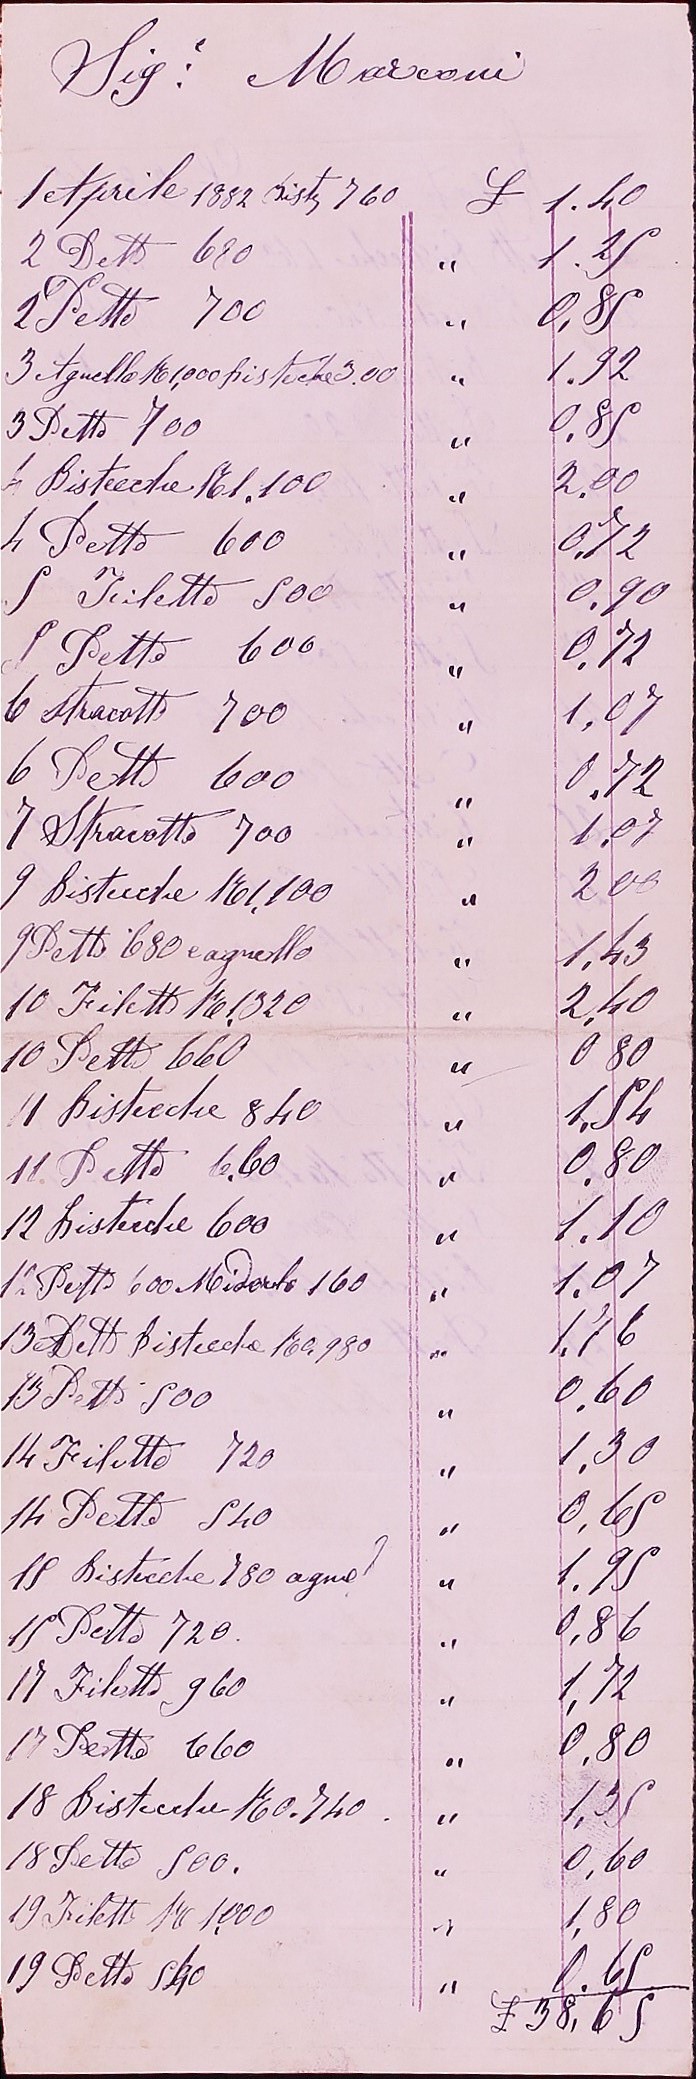 Sigr: Marconi
1 Aprile 1882 bist 760 £ 1.40
2 Detto 680 " 1.25
2 Petto 700 " 0,85
3 Agnello K1,000 bistecche 3.00 " 1.92
3 Petto 700 " 0.85
4 Bistecche K1.100 " 2.00
4 Petto 600 " 0.72
5 Filetto 500 " 0.90
5 Petto 600 " 0.72
6 Stracotto 700 " 1,07
6 Petto 600 " 0.72
7 Stracotto 700 " 1.07
9 Bistecche K1,100 " 2 00
9 Petto 680 e agnello " 1,43
10 Filetto K1,320 " 2,40
10 Petto 660 " 0 80
11 Bistecche 840 " 1,54
11 Petto 6.60 " 0.80
12 Bistecche 600 " 1.10
12 Petto 600 Midollo 160 " 1.07
13 Detto Bistecche K0.980 " 1.76
13 Petto 500 " 0.60
14 Filetto 720 " 1,30
14 Petto 540 " 0,65
15 Bistecche 780 agne " 1.95
15 Petto 720. " 0,86
17 Filetto 960 " 1,72
17 Petto 660 " 0,80
18 Bistecche K0.740. " 1,35
18 Petto 500. " 0,60
19 Filetto K 1,000 " 1,80
19 Petto 540 " 0.65
£ 38,65